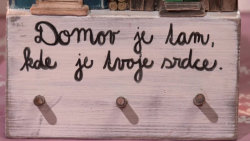 Domov je tam,
kde je tvoje srdce.